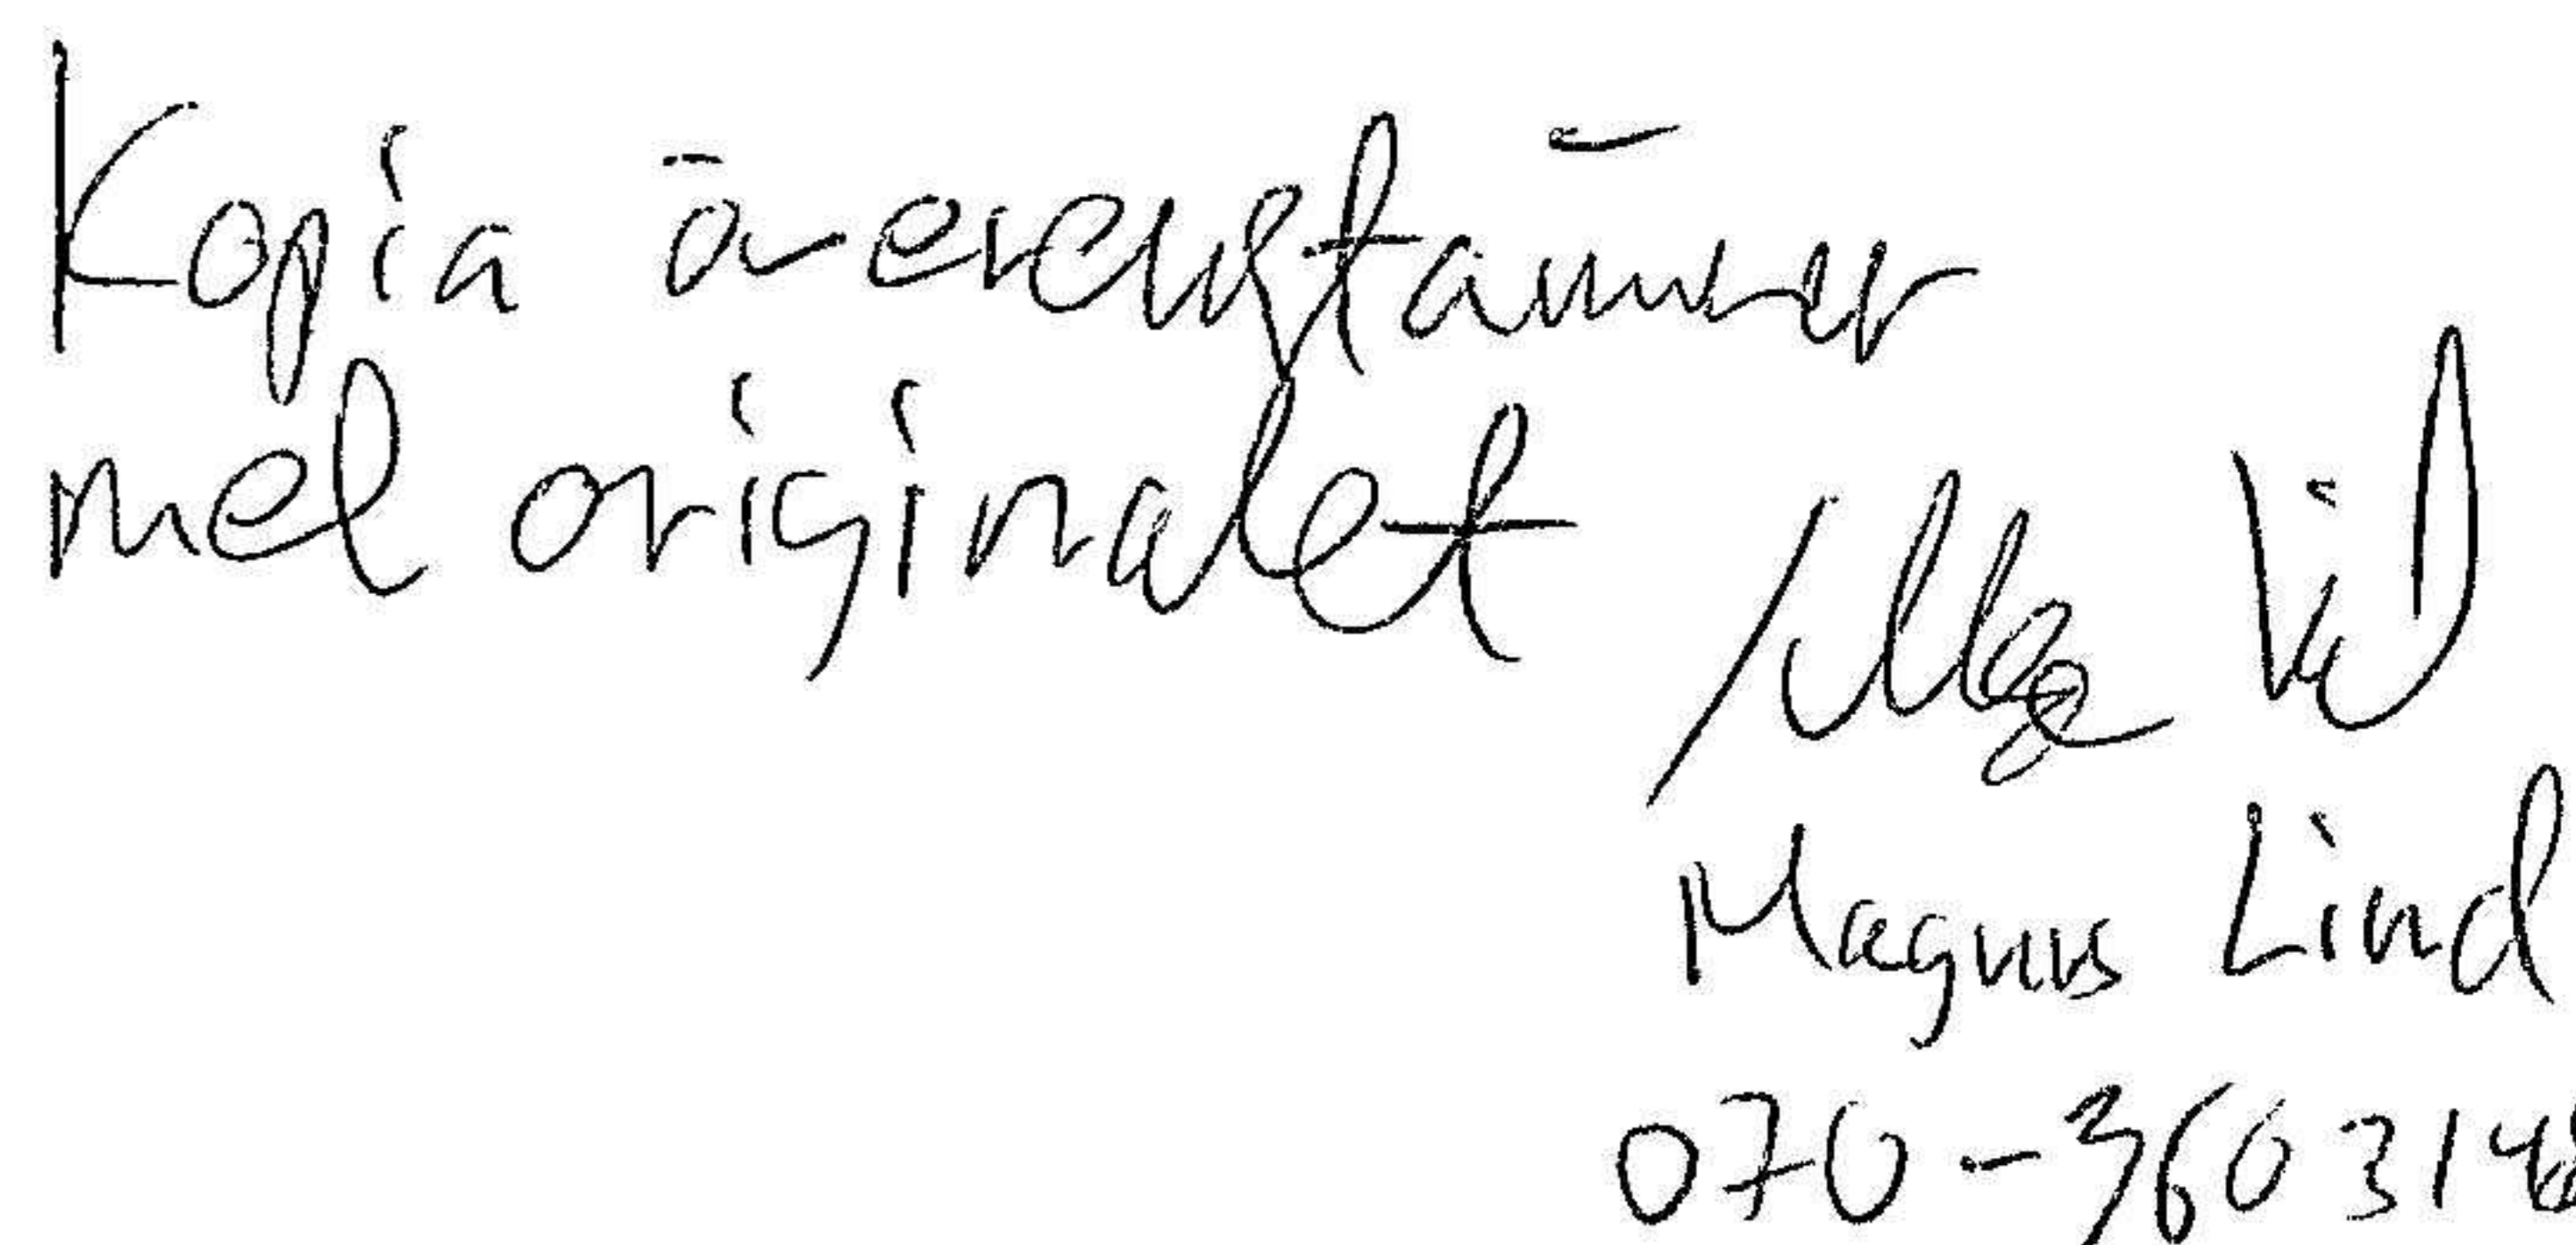 Kopia överenstämmer
med originalet
Magnus Lind
070-3603148